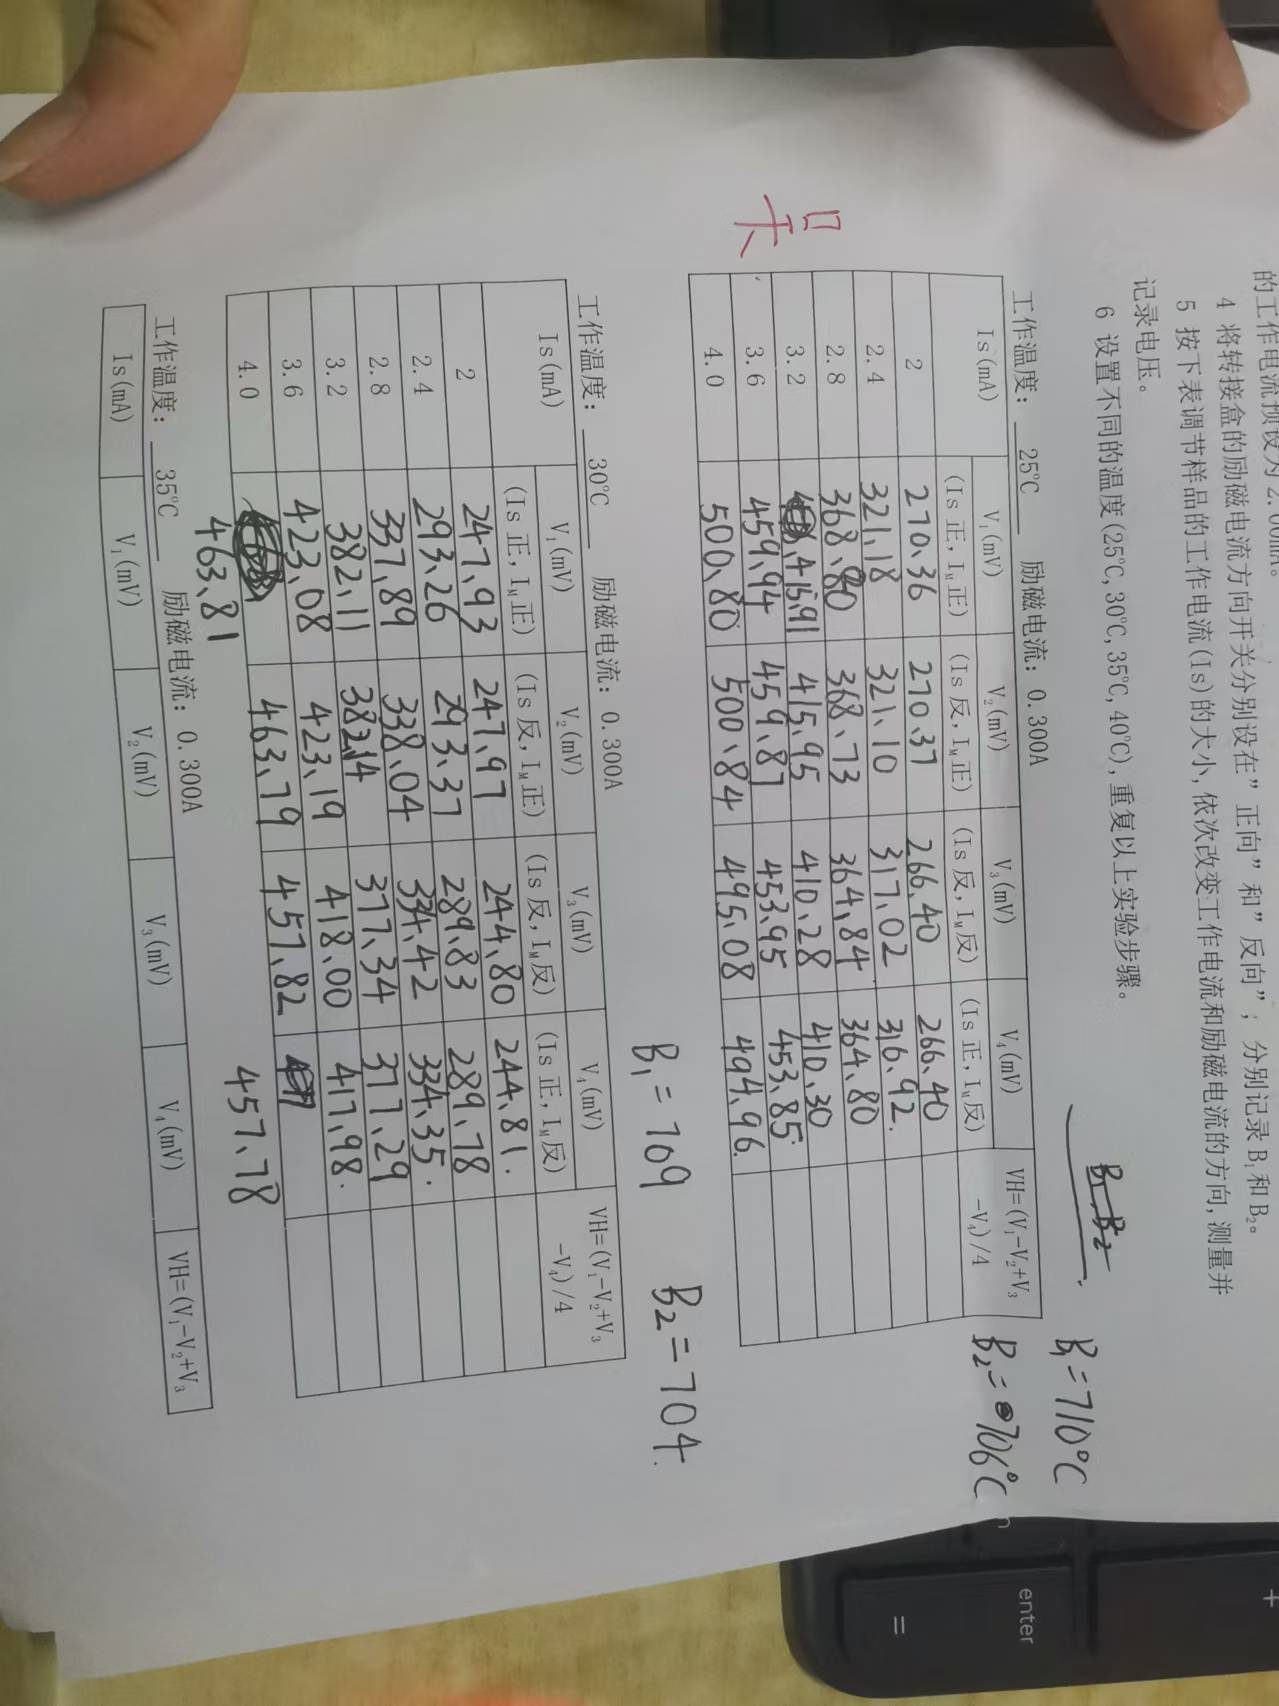 的工作电流预设为 2.00mA。
4 将转接盒的励磁电流方向开关分别设在"正向"和"反向", 分别记录 B₁和 B₂。
5 按下表调节样品的工作电流(Is)的大小, 依次改变工作电流和励磁电流的方向, 测量并
记录电压。
6 设置不同的温度(25℃, 30℃, 35℃, 40℃), 重复以上实验步骤。
B₁=710℃
B₂=706℃
工作温度: 25℃ 励磁电流: 0.300A
Is(mA) V₁(mV) V₂(mV) V₃(mV) V₄(mV) VH=(V₁-V₂+V₃
(Is 正, I_M 正) (Is 反, I_M 正) (Is 反, I_M 反) (Is 正, I_M 反) -V₄)/4
2 270.36 270.37 266.40 266.40
2.4 321.18 321.10 317.02 316.92
2.8 368.80 368.73 364.84 364.80
3.2 415.91 415.95 410.28 410.30
3.6 459.94 459.87 453.95 453.85
4.0 500.80 500.84 495.08 494.96
B₁=709 B₂=704
工作温度: 30℃ 励磁电流: 0.300A
Is(mA) V₁(mV) V₂(mV) V₃(mV) V₄(mV) VH=(V₁-V₂+V₃
(Is 正, I_M 正) (Is 反, I_M 正) (Is 反, I_M 反) (Is 正, I_M 反) -V₄)/4
2 247.93 247.97 244.80 244.81
2.4 293.26 293.37 289.83 289.78
2.8 337.89 338.04 334.42 334.35
3.2 382.11 382.14 377.34 377.29
3.6 423.08 423.19 418.00 417.98
4.0 463.79 457.82
463.81 457.78
工作温度: 35℃ 励磁电流: 0.300A
Is(mA) V₁(mV) V₂(mV) V₃(mV) V₄(mV) VH=(V₁-V₂+V₃
enter
=
+